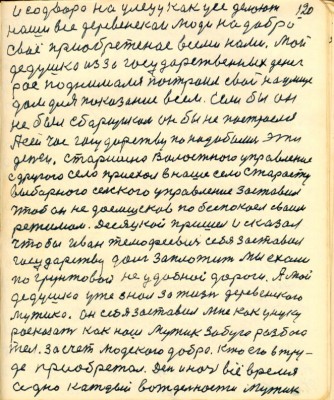 120
и со двора на улицу как усе делают
наши все деревенские люди на добро
своё приобретеное всеми нами. Мой
дедушка из за государственных денег
рое поднимался построил свой на улице
дом для показание всем. Если бы он
не был сборщиком он бы не построился
А сей час государству понадобились эти
деньги, старшино Волостного управление
с другого село приехол в наше село старосту
выборного селского управление заставил
чтоб он не доемщиков побеспокоел своим
режимом. Десяцкой пришел и сказал
чтобы Иван Темофеевич себя заставил
государству долг заплотить мы ехали
по грунтовой не удобной дороги. А мой
дедушка уже знал за жизн деревенского
мужика. он себя заставил мне как унуку
росказать как наш мужик забуго
тел. За счет людского добро. Кто его в тру-
де приобретал. Ден и ноч всё время
одно каждый мужик